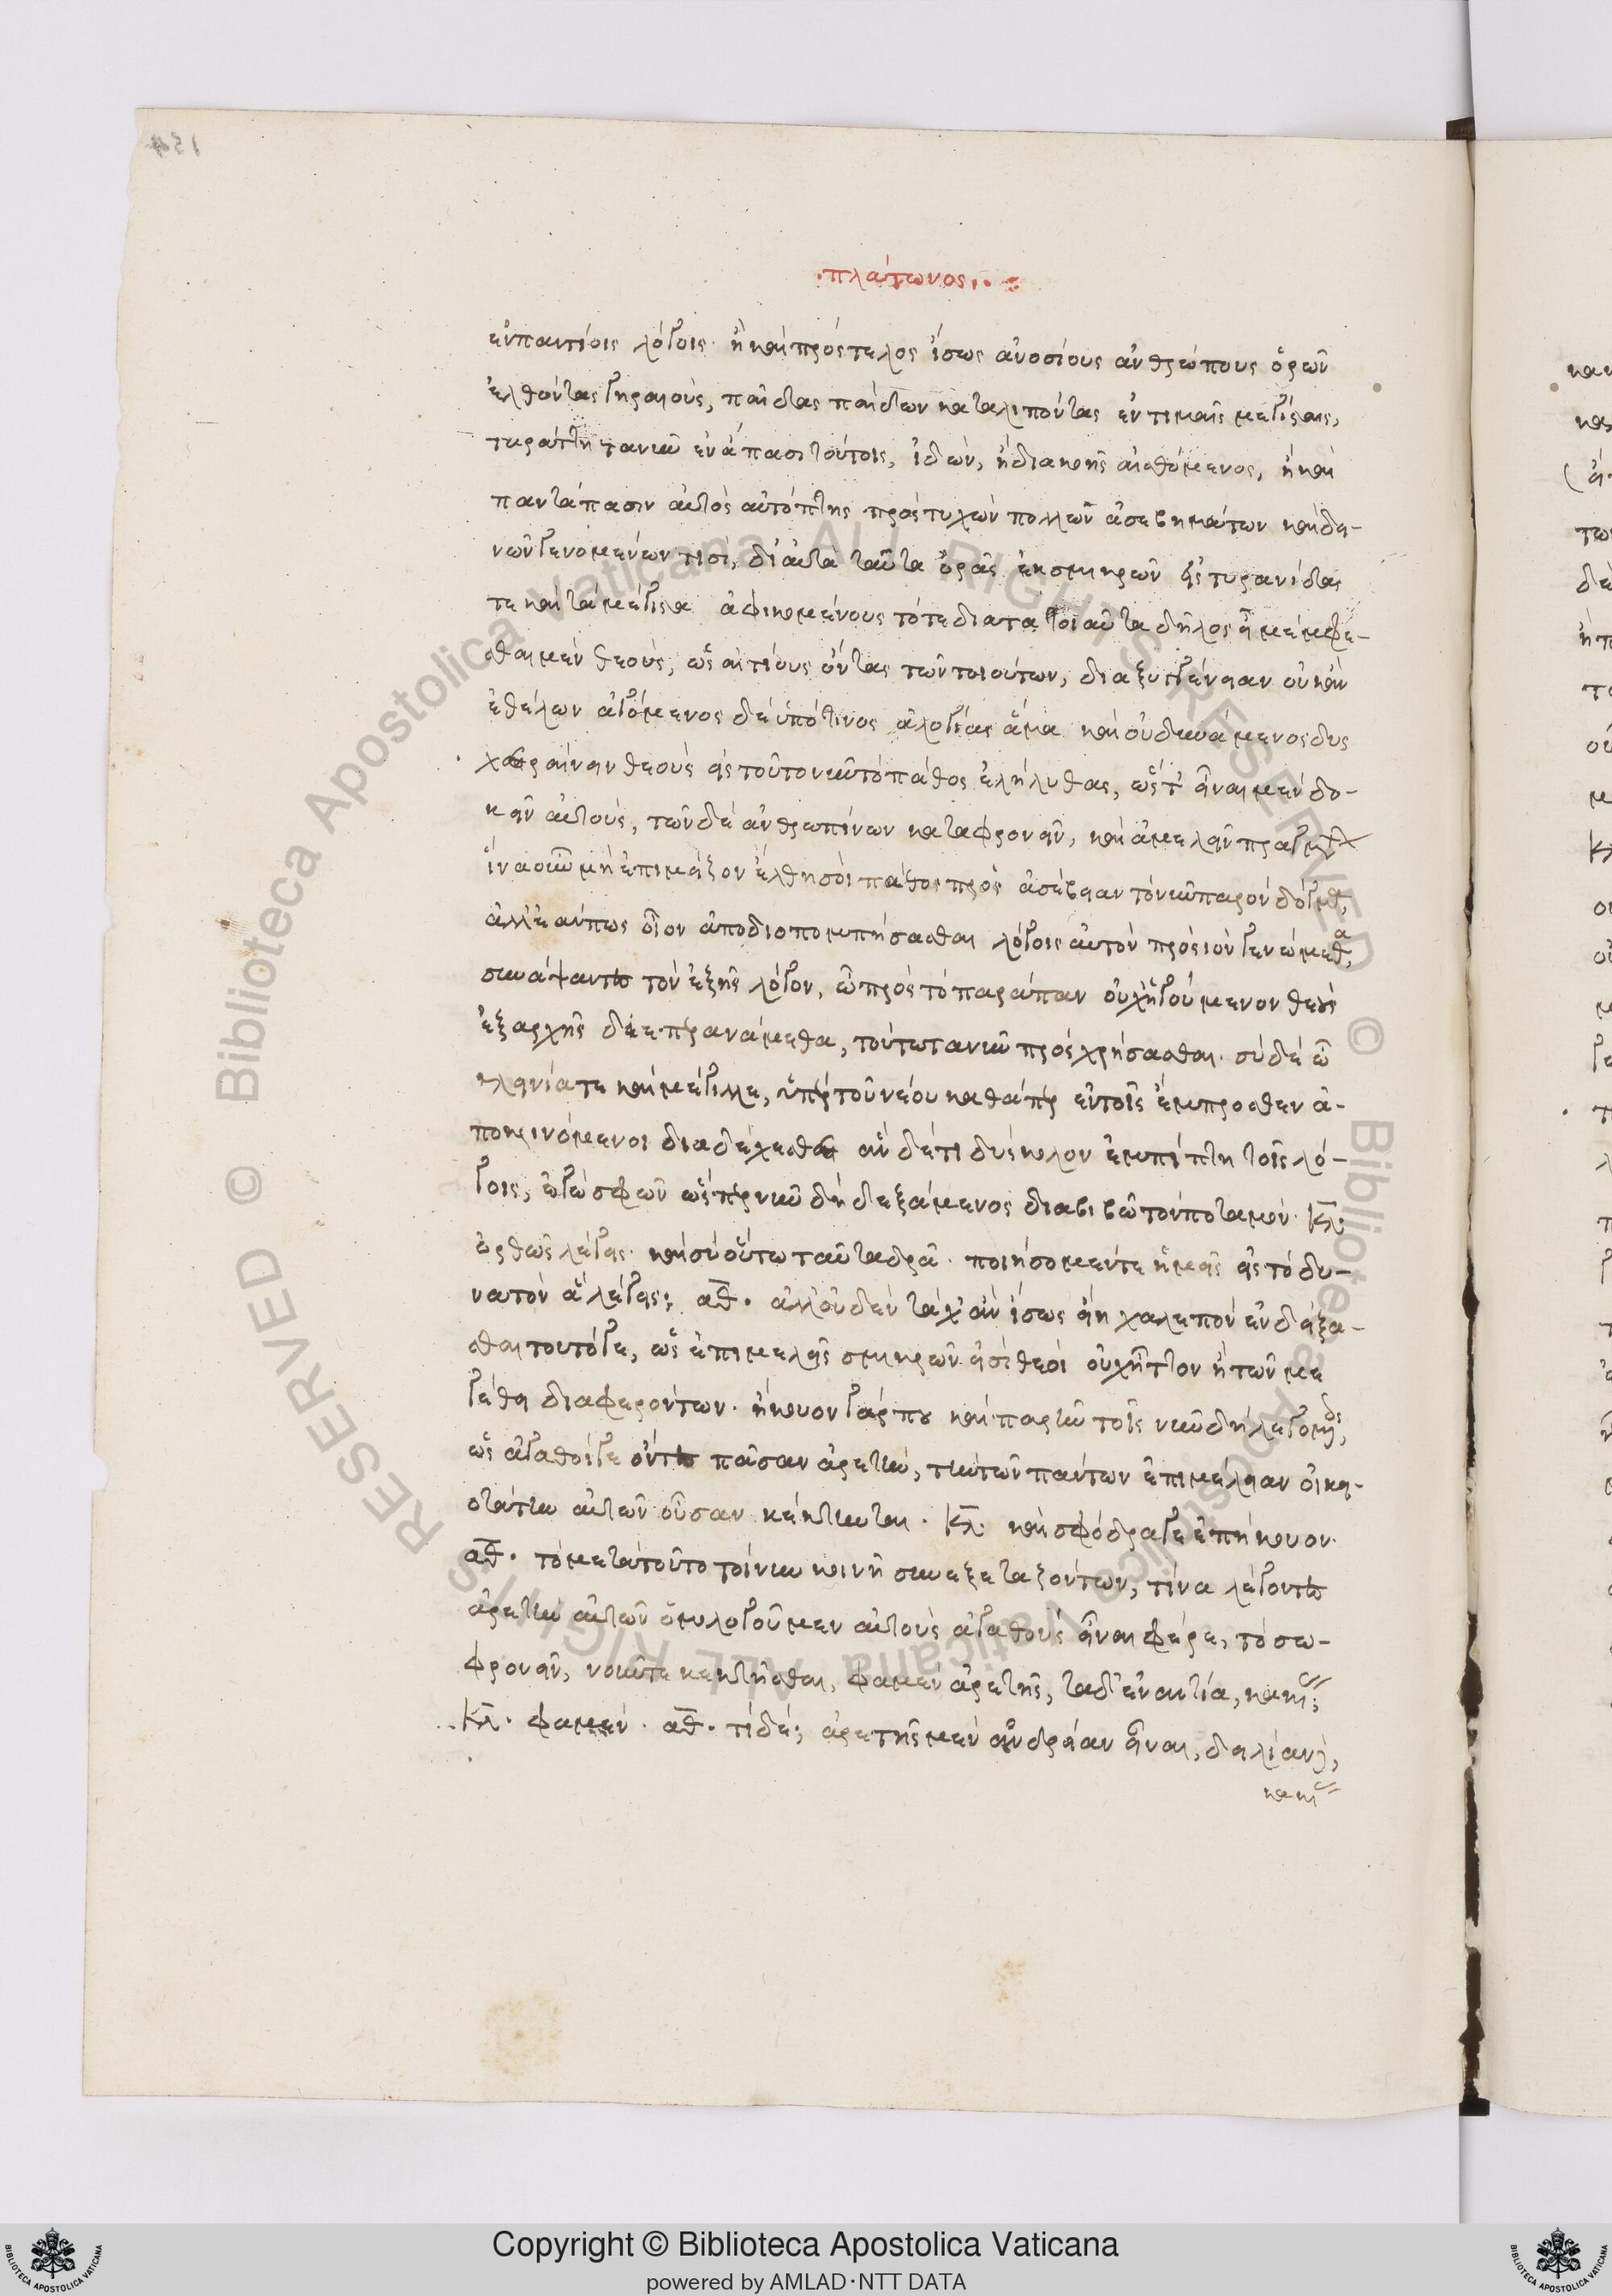 154
·πλάτωνος··:
ἐν παντίοις λόγοις· ἢ καὶ πρὸς τέλος ἴσως ἀνοσίους ἀνθρώπους ὁρῶν
ἐλθόντας γηραιούς, παῖδας παίδων καταλιπόντας ἐν τιμαῖς μεγίσταις,
ταράττη τανῦν ἐν ἅπασι τούτοις, ἰδὼν, ἢ διακοῆς αἰσθόμενος, ἢ καὶ
παντάπασιν αὐτὸς αὐτόπτης προστυχὼν πολλῶν ἀσεβημάτων καὶ δει-
νῶν γενομένων τισὶ, δι' αὐτὰ ταῦτα ὁρᾷς ἐκ σμικρῶν εἰς τυραννίδας
τε καὶ τὰ μέγιστα ἀφικομένους τότε διὰ τὰ τοιαῦτα δῆλος εἶ μέμφε-
σθαι μὲν θεοὺς, ὡς αἰτίους ὄντας τῶν τοιούτων, διὰ ξυγγένειαν οὐκ ἂν
ἐθέλων ἀγόμενος δὲ ὑπό τινος ἀλογίας ἅμα καὶ οὐ δυνάμενος δυς
χεραίνειν θεοὺς εἰς τοῦτο νῦν τὸ πάθος ἐλήλυθας, ὥστ' εἶναι μὲν δο-
κεῖν αὐτοὺς, τῶν δὲ ἀνθρωπίνων καταφρονεῖν, καὶ ἀμελεῖν πραγμάτων
ἵνα οὖν μὴ ἐπὶ μεῖζον ἔλθη σοι πάθος πρὸς ἀσέβειαν τὸ νῦν παρὸν δόγμα,
ἀλλ' ἐάν πως οἷον ἀποδιοπομπήσασθαι λόγοις αὐτὸν προσιὸν γενώμεθα,
συνάψαντες τὸν ἑξῆς λόγον, ὧ πρὸς τὸ παράπαν οὐχ ἡγούμενον θεοὺς
ἐξ αρχῆς διεπερανάμεθα, τούτω τανῦν προσχρήσασθαι. σὺ δὲ ὦ
κλεινία τε καὶ μέγιλλε, ὑπὲρ τοῦ νέου καθάπερ ἐν τοῖς ἔμπροσθεν ἀ-
ποκρινόμενοι διαδέχεσθε ἂν δέ τι δύσκολον ἐμπίπτη τοῖς λό-
γοις, ἐγὼ σφῶν ὥσπερ νῦν δὴ δεξάμενος διαβιβῶ τὸν ποταμόν. κλ:
ὀρθῶς λέγεις. καὶ σὺ οὕτω ταῦτα δρᾶ. ποιήσομέν τε ἡμεῖς εἰς τὸ δυ-
νατὸν ἃ λέγεις; αθ. ἀλλ' οὐδὲν τάχ' ἂν ἴσως εἴη χαλεπὸν ἐνδείξα-
σθαι τουτό γε, ὡς ἐπιμελεῖς σμικρῶν εἰσὶ θεοὶ οὐχ ἧττον ἢ τῶν με
γέθει διαφερόντων. ἤκουον γάρ που καὶ παρῆν τοῖς νῦν δὴ λεγομένοις,
ὡς ἀγαθοί γε ὄντες πᾶσαν ἀρετὴν, τὴν τῶν πάντων ἐπιμέλειαν οἰκει-
οτάτην αὐτῶν οὖσαν κέκτηνται. κλ. καὶ σφόδρα γε ἐπήκουον.
αθ. τὸ μετὰ τοῦτο τοίνυν κοινῆ συνεξεταζόντων, τίνα λέγοντες
ἀρετὴν αὐτῶν ὁμολογοῦμεν αὐτοὺς ἀγαθοὺς εἶναι φέρε, τὸ σω-
φρονεῖν, νοῦν τε κεκτῆσθαι, φαμὲν ἀρετῆς, τὰ δ' ἐναντία, κακίας;
κλ. φαμέν. αθ. τί δέ; ἀρετῆς μὲν ἀνδρείαν εἶναι, δειλίαν δὲ,
κακίας